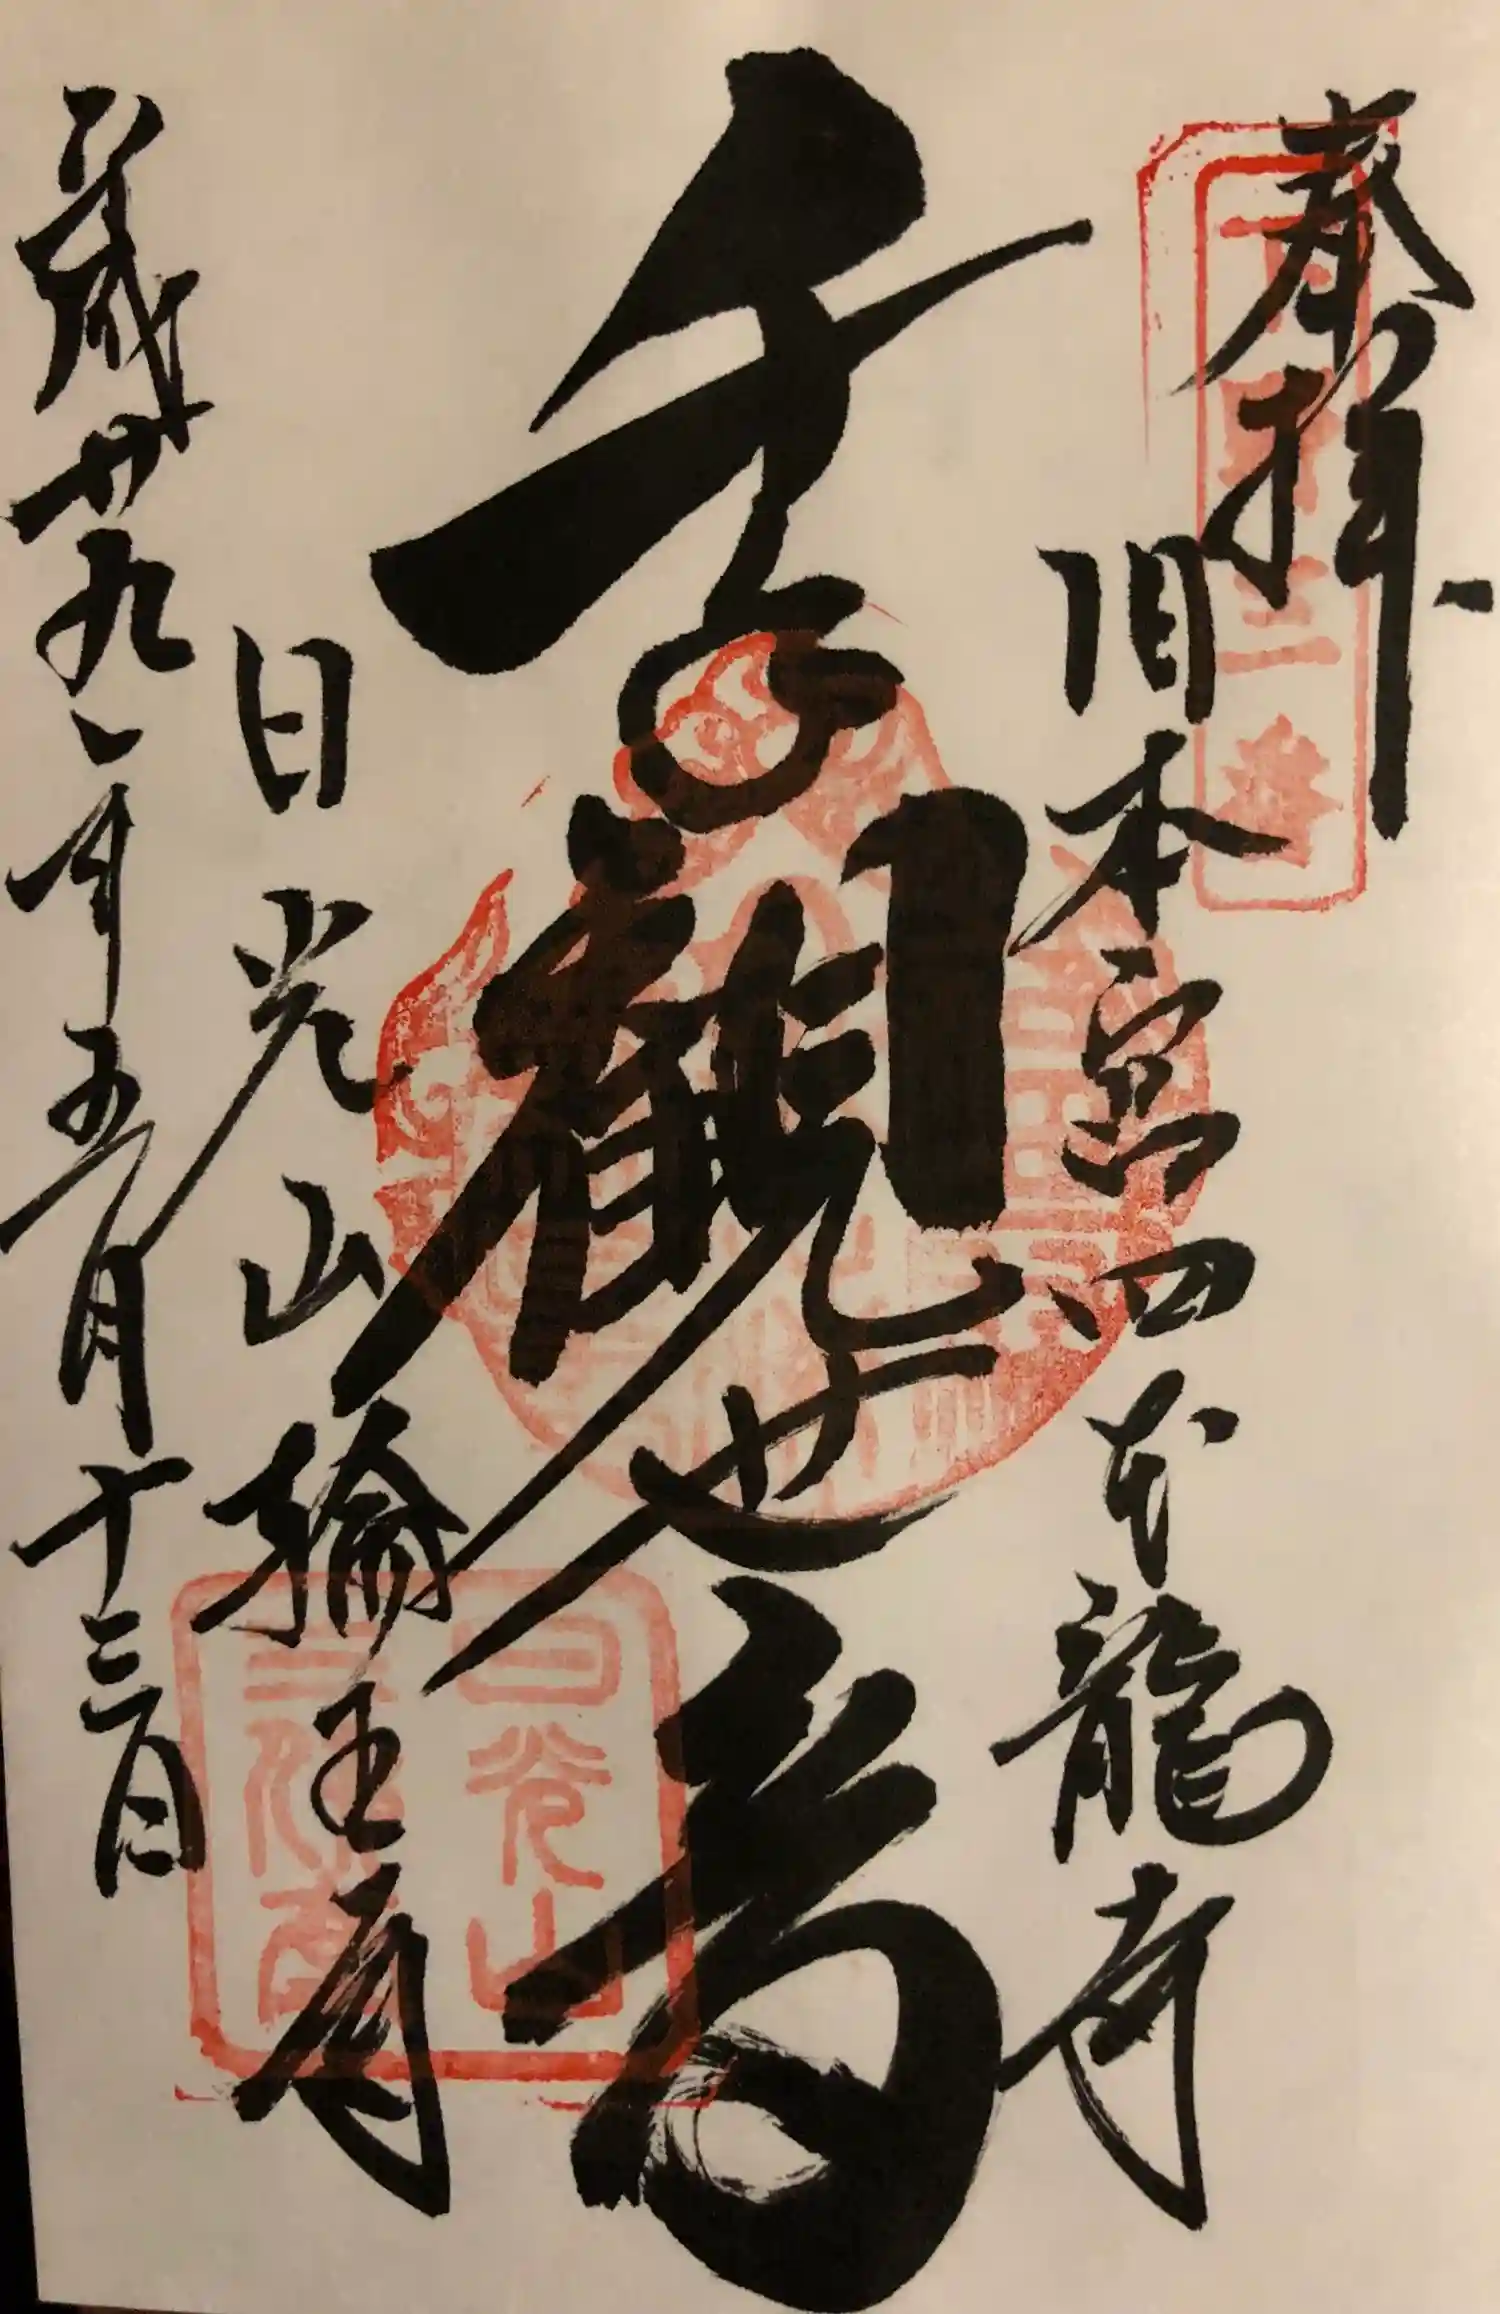 奉拝
旧本宮四本龍寺
千手觀世音
日光山輪王寺
平成廿九年五月十三日
日光山